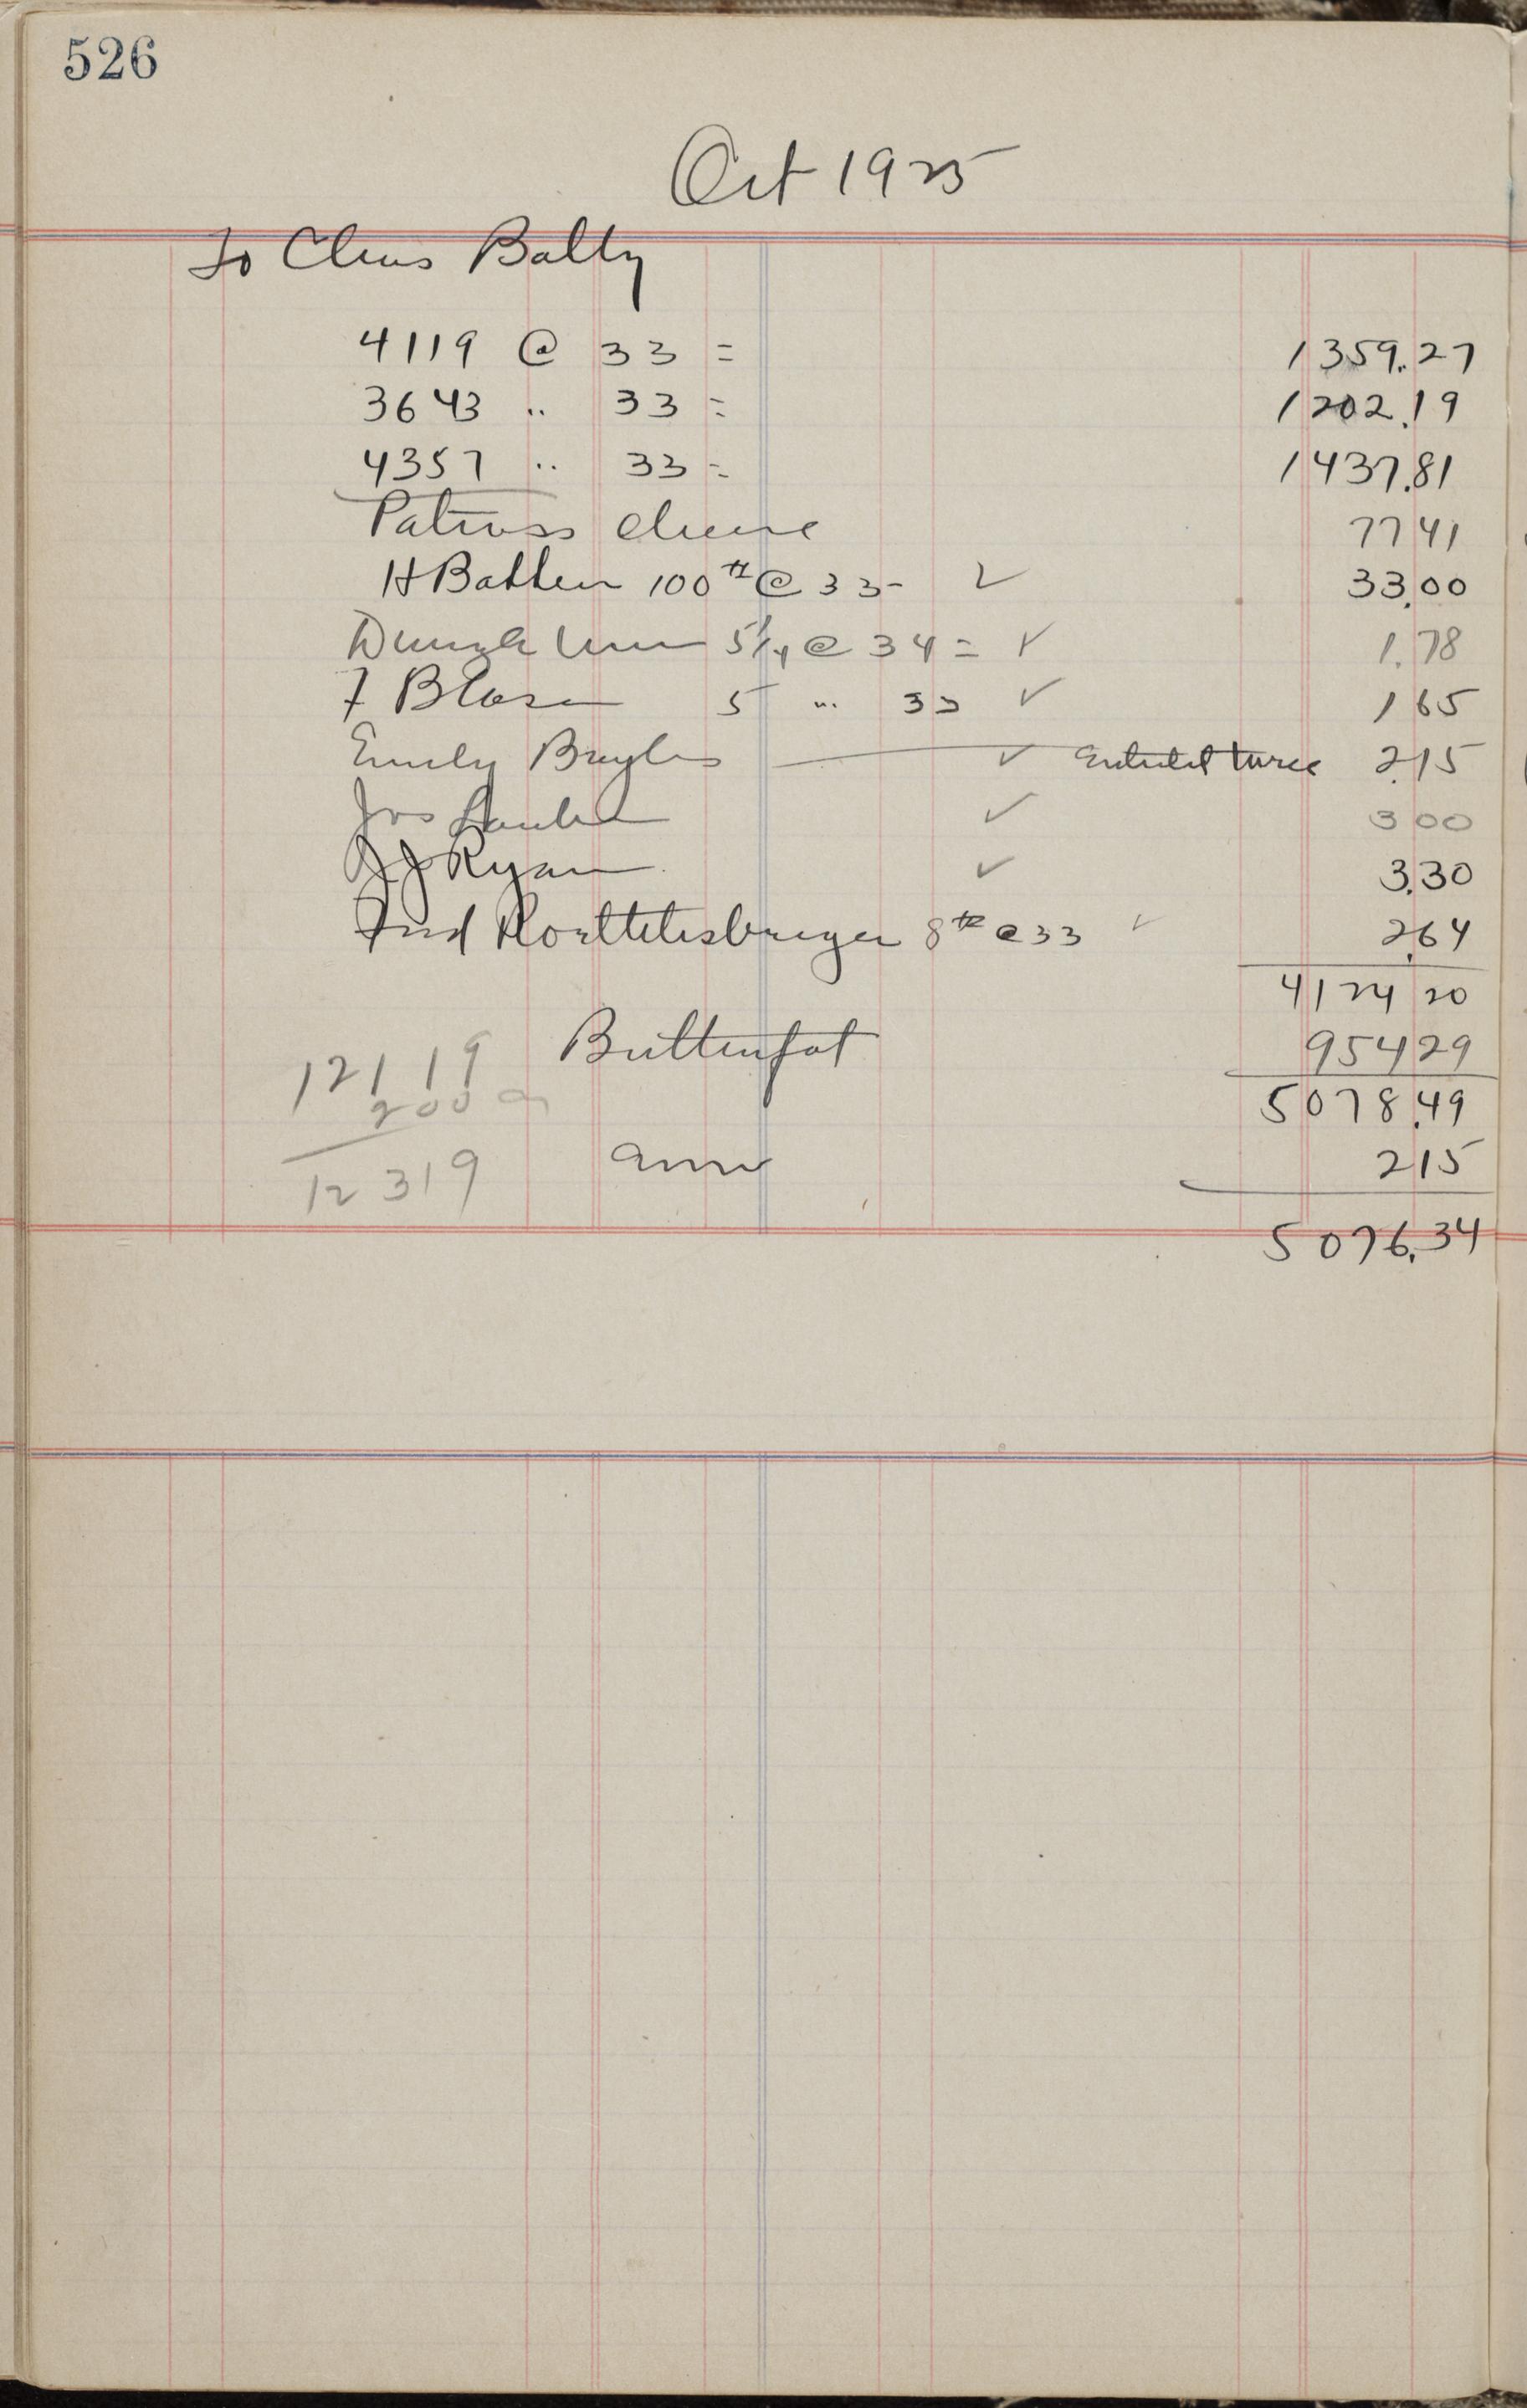 526
Oct 1925
To Chas Bally
4119 @ 33 = 1359.27
3643 " 33 = 1202.19
4357 " 33 = 1437.81
Patrons cheese 77 41
H Batten 100 # @ 33 - ✓ 33.00
5 1/4 @ 34 = ✓ 1.78
F Blaser 5 " 33 ✓ 1 65
Emily Bayles — ✓ Entered twice 2.15
Jos ✓ 3 00
J J Ryan ✓ 3.30
Fred Roethlisberger 8 # @ 33 ✓ 2.64
4124 20
Butterfat 954 29
12119
200
5078.49
12319
error 2 15
5076.34